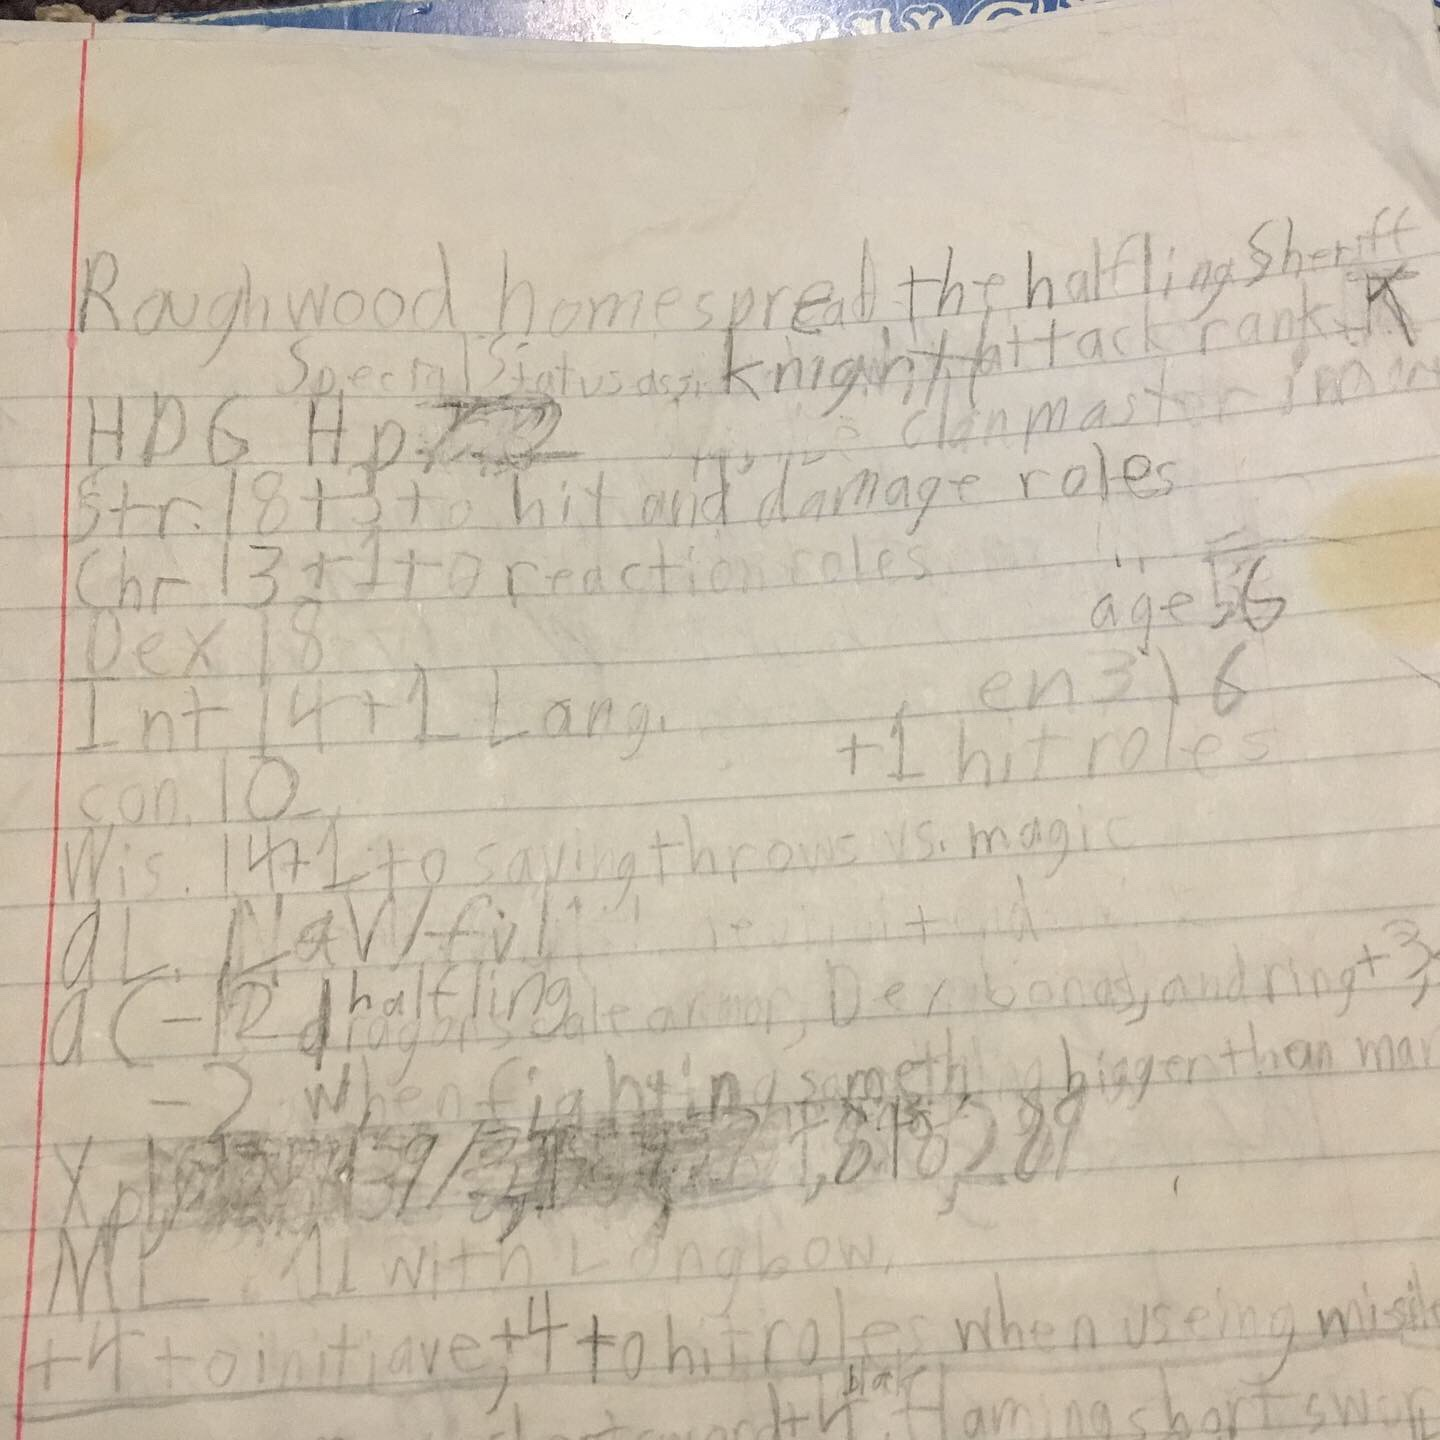 Roughwood homespread the halfling Sheriff
Special Status ass. knight attack rank K
HDG Hp.
clanmaster in
Str. 18+3 to hit and damage roles
Chr 13+1 to reaction roles
age 56
Dex 18
en 316
Int 14+1 Lang.
+1 hit roles
con. 10
Wis. 14+1 to saving throws vs. magic
aL. LaWful
halfling
aC-12 dragonscale armor, Dex. bonas, and ring +3,
-2 when fighting something bigger than man
Xp 1,818,289
ML. 11 with Longbow.
+4 to initiave, +4 to hit roles when useing
black
+4 flaming short